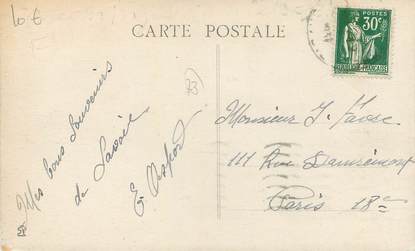 10 €
CARTE POSTALE
POSTES
30c
REPUBLIQUE FRANÇAISE
73
Mes bons souvenirs
de Savoie
E.
Monsieur J.
111 Rue Damrémont
Paris 18e